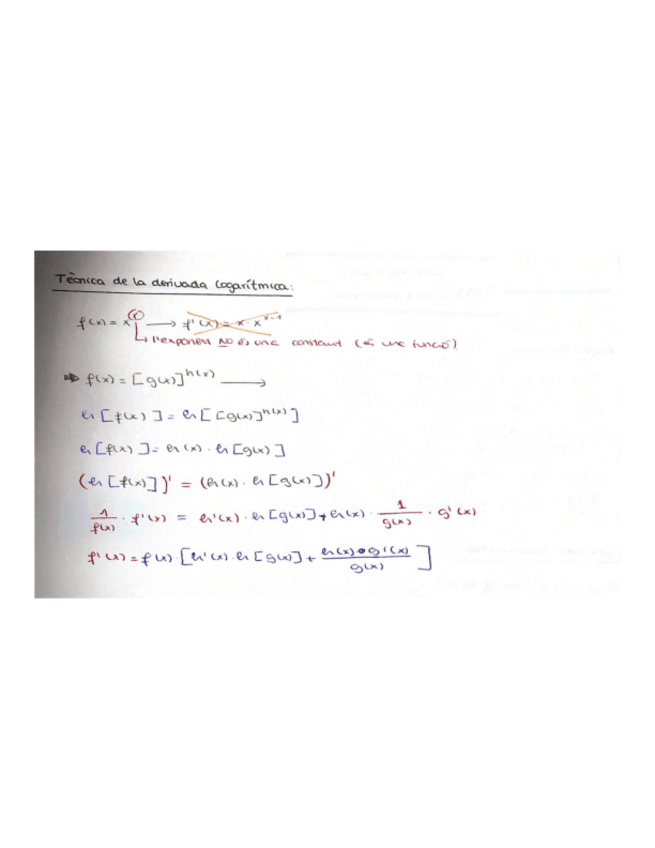 Tècnica de la derivada logarítmica:
f(x) = x^x → f'(x) = x · x^{x-1}
l'exponent NO és una constant (és una funció)
⇒ f(x) = [g(x)]^{h(x)} →
ln [f(x)] = ln [[g(x)]^{h(x)}]
ln [f(x)] = h(x) · ln [g(x)]
(ln [f(x)])' = (h(x) · ln [g(x)])'
1/f(x) · f'(x) = h'(x) · ln [g(x)] + h(x) · 1/g(x) · g'(x)
f'(x) = f(x) · [h'(x) · ln [g(x)] + h(x) · g'(x)/g(x)]